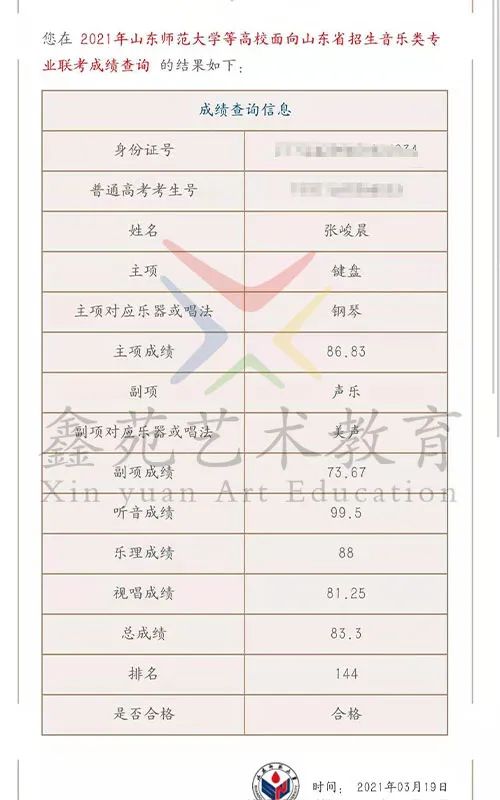 您在 2021年山东师范大学等高校面向山东省招生音乐类专
业联考成绩查询 的结果如下:
成绩查询信息
身份证号
普通高考考生号
姓名 张峻晨
主项 键盘
主项对应乐器或唱法 钢琴
主项成绩 86.83
副项 声乐
副项对应乐器或唱法 美声
鑫苑艺术教育
副项成绩 73.67
Xin yuan Art Education
听音成绩 99.5
乐理成绩 88
视唱成绩 81.25
总成绩 83.3
排名 144
是否合格 合格
时间: 2021年03月19日